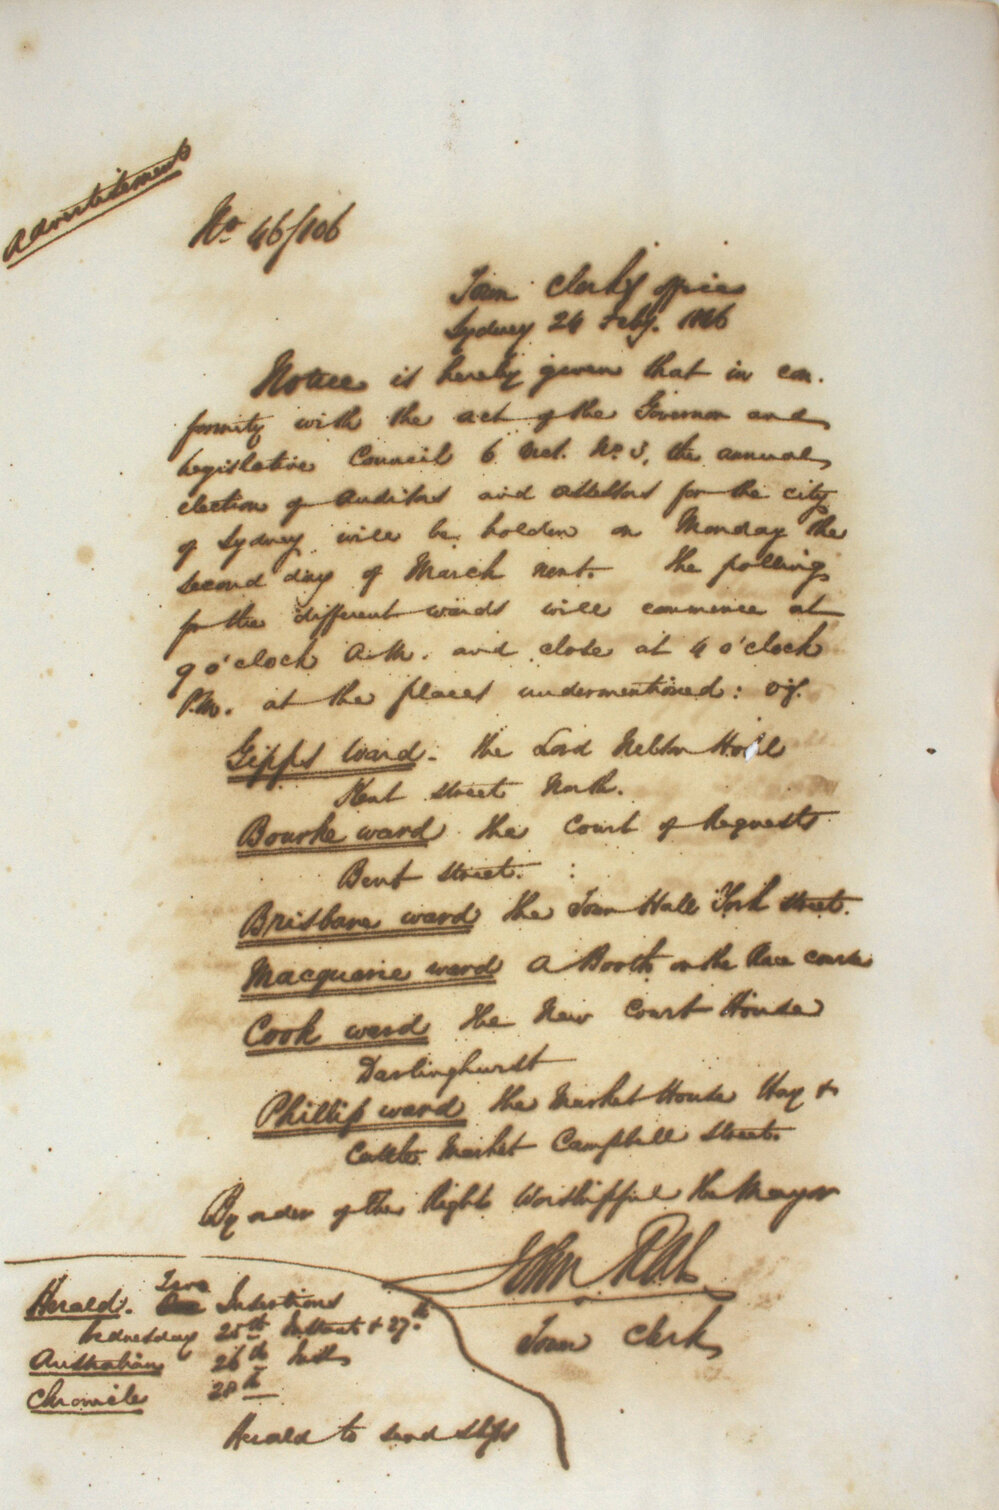 Advertisement
No. 46/106
Town Clerk's office
Sydney 24 Feby. 1846
Notice is hereby given that in con.
formity with the act of the Governor and
Legislative Council 6 Vict. No. 3, the annual
election of Auditors and Assessors for the city
of Sydney will be holden on Monday the
second day of March next. The polling
for the different wards will commence at
9 o'clock A.M. and close at 4 o'clock
P.M. at the places undermentioned: viz.
Gipps Ward. The Lord Nelson Hotel
Kent Street North.
Bourke Ward The Court of Requests
Bent Street.
Brisbane Ward The Town Hall York Street.
Macquarie Ward A Booth on the Race course
Cook Ward The New Court House
Darlinghurst
Phillip Ward The Market House Hay &
Cattle Market Campbell Street.
By order of the Right Worshipful the Mayor
John Rae
Town Clerk
Herald. Two Insertions
Wednesday 25th Instant & 27th
Australian 26th Inst
Chronicle 28th
Herald to send slips